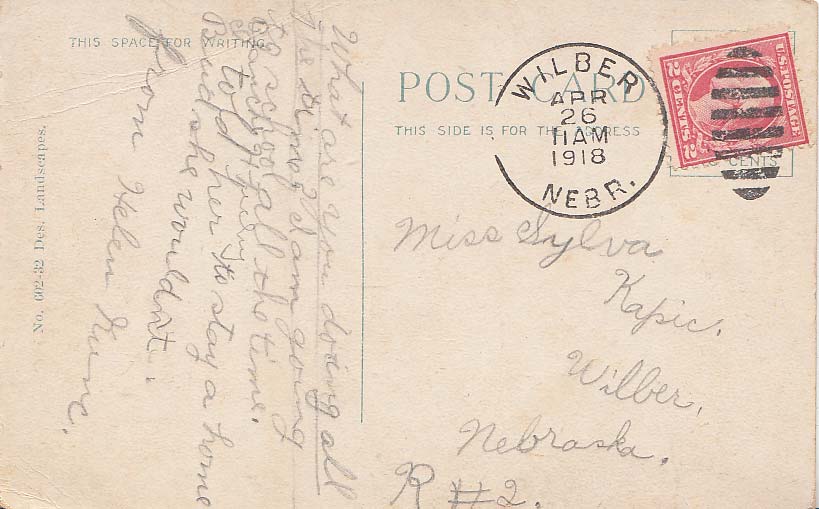 THIS SPACE FOR WRITING
POST CARD
THIS SIDE IS FOR THE ADDRESS
WILBER
APR
26
11AM
1918
NEBR.
U.S. POSTAGE
2 CENTS 2
CENTS
No. 602-32 Des. Landscapes.
What are you doing all
the time? I am going
to school all the time.
told
her to stay a home
But she wouldn't.
from Helen
Miss Sylva
Kapic,
Wilber,
Nebraska.
R #2.